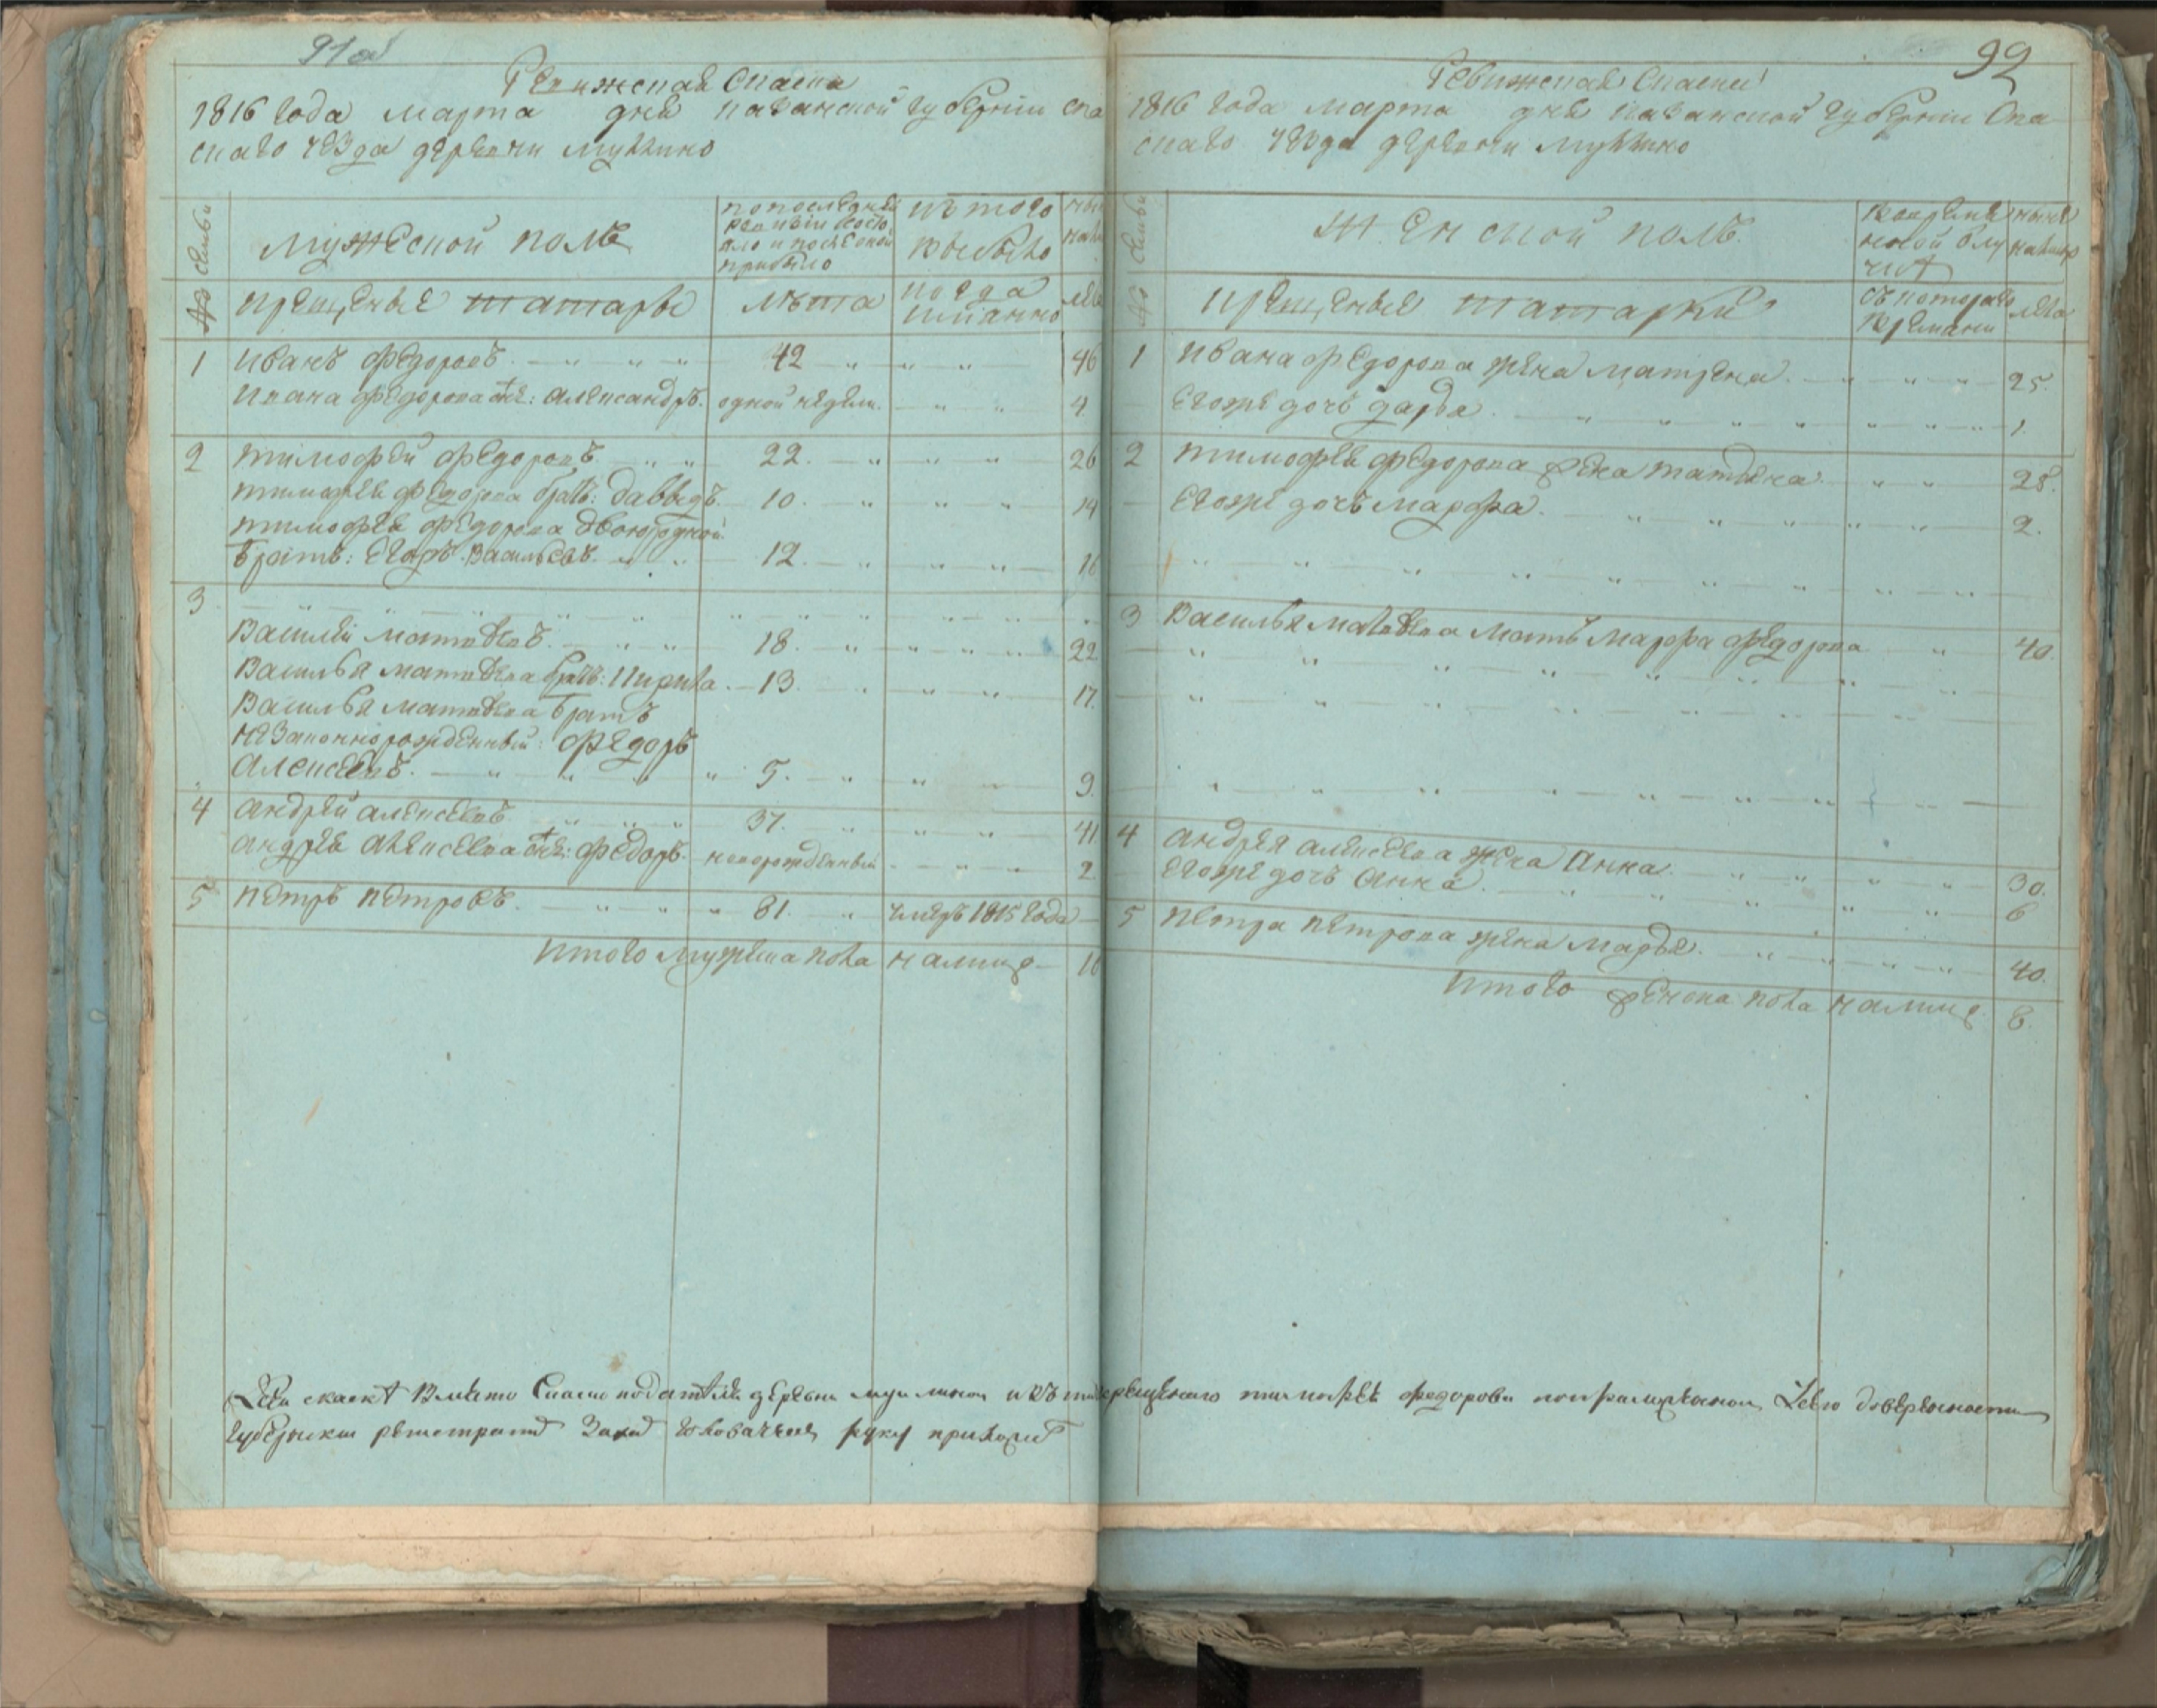 91 об
Ревижская Сказка
1816 года марта дня казанской губернии Спа
скаго уезда деревни мулкино
№ семьи
мужеской полъ
По последней
ревизии состо
яло и после оной
прибыло
изъ того
выбыло
ныне
крещеные татары
лѣта
когда
имянно
лета
1 Иванъ федоровъ 42 46
Ивана федорова сынъ: александръ одной недели 4
2 тимофей федоровъ 22 26
тимофея федорова братъ: давыдъ 10 14
тимофея федорова двоюродной
братъ: Егоръ Васильевъ 12 16
3
Василей матвѣевъ 18 22
Василья матвѣева братъ: Кирила 13 17
Василья матвѣева братъ
незаконнорожденный: федоръ
алексѣевъ 5 9
4 андрей алексѣевъ 37 41
андрея алексѣева сынъ: федоръ новорожденный 2
5 петръ петровъ 81 умеръ 1815 года
Итого мужеска пола налицо 10
92
Ревижская Сказка
1816 года марта дня казанской губернии Спа
скаго уезда деревни мулкино
№ семьи
Женской полъ
во времен
ной отлу
чкѣ
ныне
налицо
крещеные татарки
съ котораго
времяни
лета
1 Ивана федорова жена матрена 25
Егоже дочь дарья 1
2 тимофея федорова жена татьяна 28
Егоже дочь марфа 2
3 Василья матвѣева мать марфа федорова 40
4 андрея алексѣева жена анна 30
Егоже дочь анна 6
5 петра петрова жена марья 40
Итого женска пола налицо 8
скаскѣ вмѣсто подателя деревни крещенаго тимофея федорова доверенности
губернски регистраторъ руку приложилъ